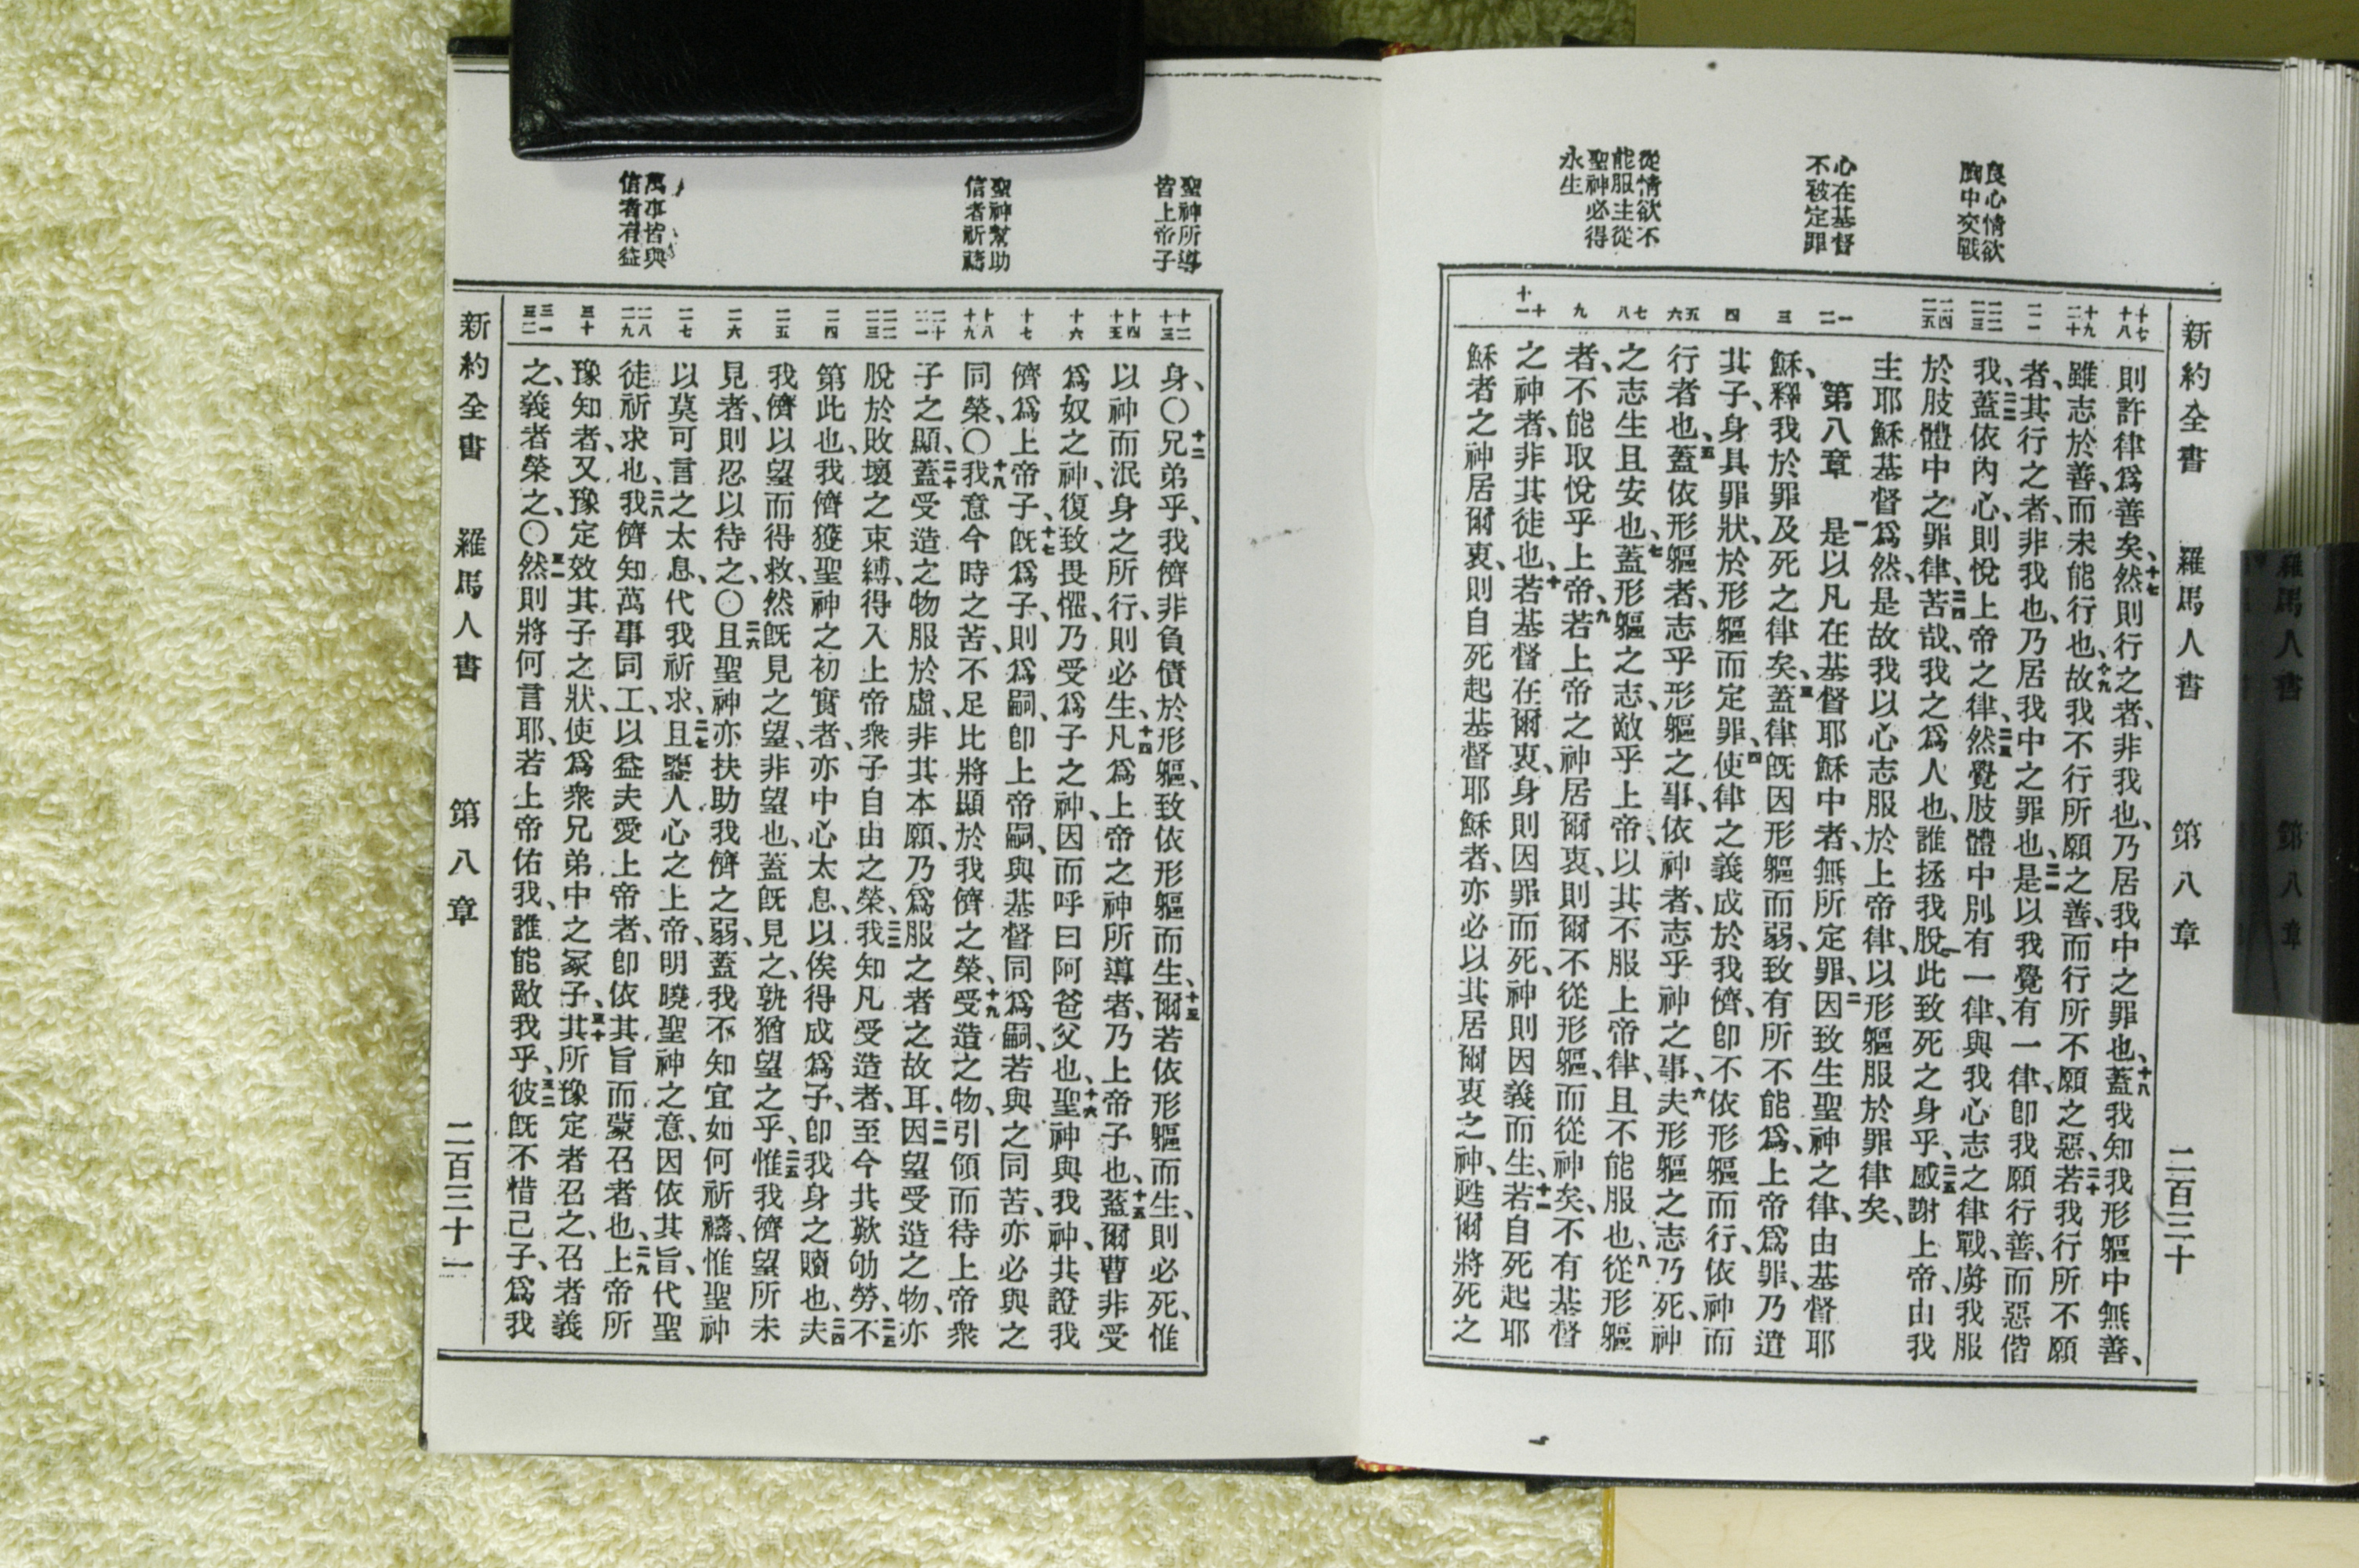 新約全書 羅馬人書 第八章 二百三十
良心情欲
胸中交戰
心在基督
不被定罪
從情欲不
能服主從
聖神必得
永生
則許律爲善矣、十七然則行之者、非我也、乃居我中之罪也、十八蓋我知我形軀中無善、
雖志於善、而未能行也、十九故我不行所願之善、而行所不願之惡、二十若我行所不願
者、其行之者、非我也、乃居我中之罪也、二一是以我覺有一律、卽我願行善、而惡偕
我、二二蓋依內心、則悅上帝之律、二三然覺肢體中別有一律、與我心志之律戰、虜我服
於肢體中之罪律、二四苦哉、我之爲人也、誰拯我脫此致死之身乎、二五感謝上帝、由我
主耶穌基督爲然、是故我以心志服於上帝律、以形軀服於罪律矣、
第八章 一是以凡在基督耶穌中者、無所定罪、二因致生聖神之律、由基督耶
穌、釋我於罪及死之律矣、三蓋律旣因形軀而弱、致有所不能爲、上帝爲罪、乃遣
其子、身具罪狀、於形軀而定罪、四使律之義成於我儕、卽不依形軀而行、依神而
行者也、五蓋依形軀者、志乎形軀之事、依神者、志乎神之事、六夫形軀之志乃死、神
之志生且安也、七蓋形軀之志、敵乎上帝、以其不服上帝律、且不能服也、八從形軀
者、不能取悅乎上帝、九若上帝之神居爾衷、則爾不從形軀、而從神矣、不有基督
之神者、非其徒也、十若基督在爾衷、身則因罪而死、神則因義而生、十一若自死起耶
穌者之神居爾衷、則自死起基督耶穌者、亦必以其居爾衷之神、甦爾將死之
聖神所導
皆上帝子
聖神幫助
信者祈禱
萬事皆與
信者有益
身、〇十二兄弟乎、我儕非負債於形軀、致依形軀而生、十三爾若依形軀而生、則必死、惟
以神而泯身之所行、則必生、十四凡爲上帝之神所導者、乃上帝子也、十五蓋爾曹非受
爲奴之神、復致畏懼、乃受爲子之神、因而呼曰阿爸父也、十六聖神與我神、共證我
儕爲上帝子、十七旣爲子、則爲嗣、卽上帝嗣、與基督同爲嗣、若與之同苦、亦必與之
同榮、〇十八我意今時之苦、不足比將顯於我儕之榮、十九受造之物、引領而待上帝衆
子之顯、二十蓋受造之物服於虛、非其本願、乃爲服之者之故耳、二一因望受造之物、亦
脫於敗壞之束縛、得入上帝衆子自由之榮、二二我知凡受造者、至今共歎劬勞、二三不
第此也、我儕獲聖神之初實者、亦中心太息、以俟得成爲子、卽我身之贖也、二四夫
我儕以望而得救、然旣見之望、非望也、蓋旣見之、孰猶望之乎、二五惟我儕望所未
見者、則忍以待之、〇二六且聖神亦扶助我儕之弱、蓋我不知宜如何祈禱、惟聖神
以莫可言之太息、代我祈求、二七且鑒人心之上帝、明曉聖神之意、因依其旨、代聖
徒祈求也、二八我儕知萬事同工、以益夫愛上帝者、卽依其旨而蒙召者也、二九上帝所
豫知者、又豫定效其子之狀、使爲衆兄弟中之冢子、三十其所豫定者召之、召者義
之、義者榮之、〇三一然則將何言耶、若上帝佑我、誰能敵我乎、三二彼旣不惜己子、爲我
新約全書 羅馬人書 第八章 二百三十一